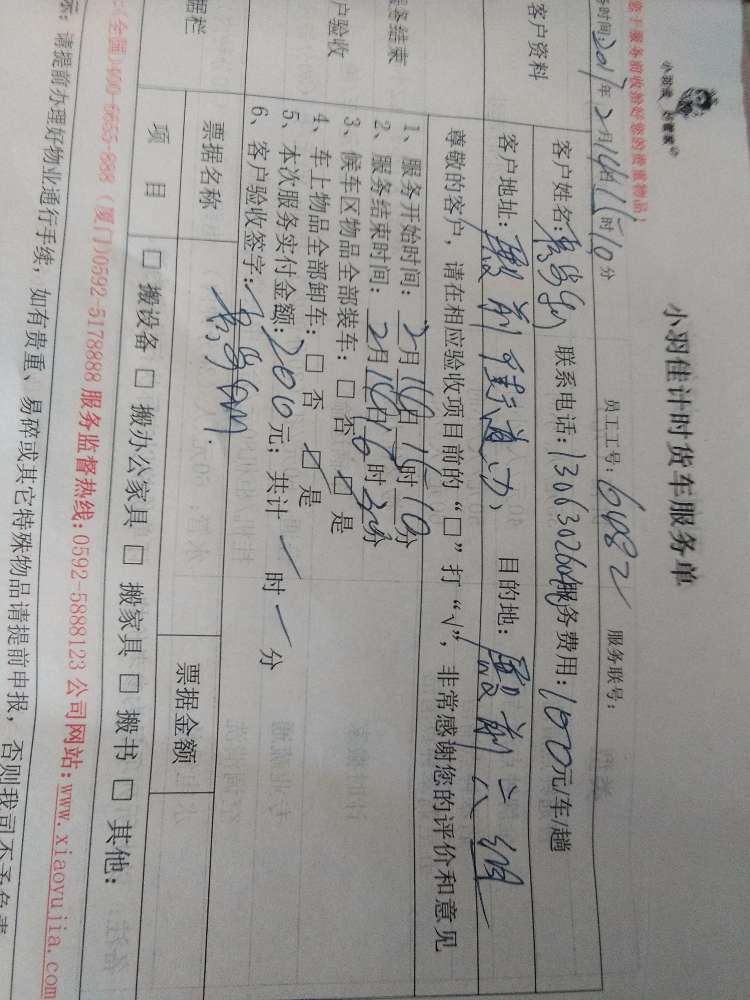 小羽佳计时货车服务单
您于服务前收拾好您的贵重物品
务时间:2017年2月14日15时10分 员工工号: 6482 服务联号:
客户资料
客户姓名: 联系电话: 服务费用:100元/车/趟
客户地址: 目的地:
服务结束
户验收
尊敬的客户，请在相应验收项目前的“□”打“√”，非常感谢您的评价和意见
1、服务开始时间: 2月14日15时10分
2、服务结束时间: 2月14日16时30分
3、候车区物品全部装车: □ 否 ☑ 是
4、车上物品全部卸车: □ 否 ☑ 是
5、本次服务实付金额:200元; 共计 / 时 / 分
6、客户验收签字:
据栏
票据名称 票据金额
项 目 □ 搬设备 □ 搬办公家具 □ 搬家具 □ 搬书 □ 其他:
:(全国)400-6655-888 (厦门)0592-5178888 服务监督热线:0592-5888123 公司网站:www.xiaoyujia.com
示: 请提前办理好物业通行手续, 如有贵重、易碎或其它特殊物品请提前申报, 否则我司不予负责